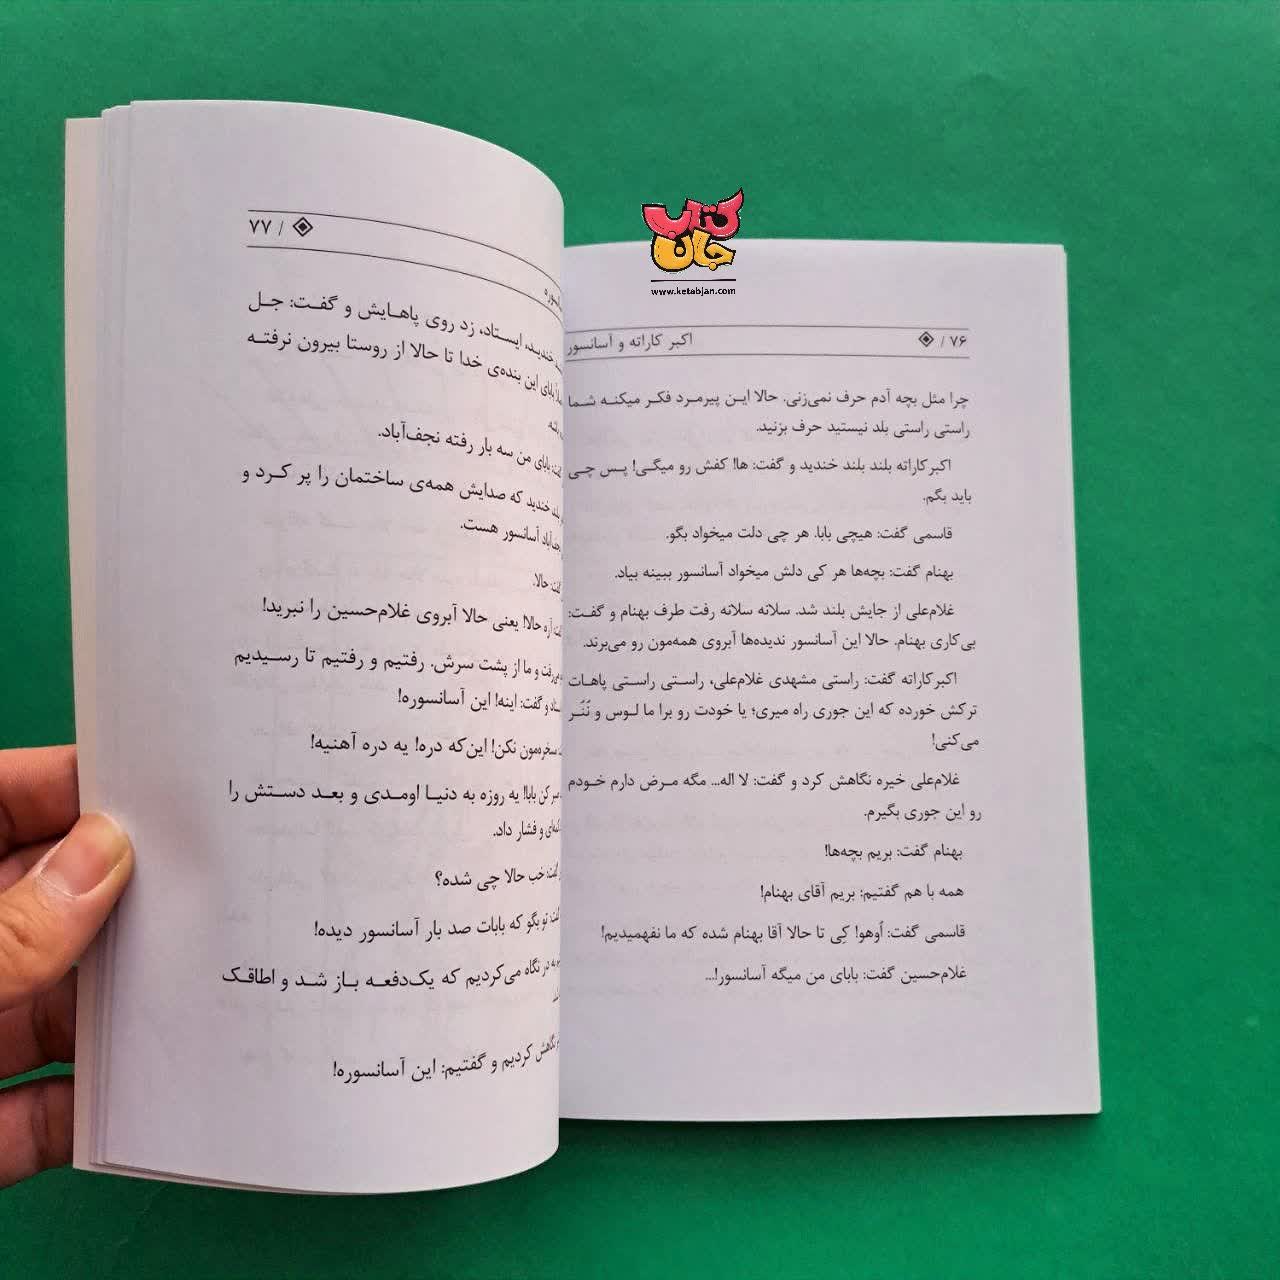 کتاب جان
www.ketabjan.com
۷۶ / اکبر کاراته و آسانسور
چرا مثل بچه آدم حرف نمی‌زنی. حالا این پیرمرد فکر میکنه شما
راستی راستی بلد نیستید حرف بزنید.
اکبرکاراته بلند بلند خندید و گفت: ها! کفش رو میگی! پس چی
باید بگم.
قاسمی گفت: هیچی بابا. هر چی دلت میخواد بگو.
بهنام گفت: بچه‌ها هر کی دلش میخواد آسانسور ببینه بیاد.
غلام‌علی از جایش بلند شد. سلانه سلانه رفت طرف بهنام و گفت:
بی‌کاری بهنام. حالا این آسانسور ندیده‌ها آبروی همه‌مون رو می‌برند.
اکبرکاراته گفت: راستی مشهدی غلام‌علی، راستی راستی پاهات
ترکش خورده که این جوری راه میری؛ یا خودت رو برا ما لوس و نُنُر
می‌کنی!
غلام‌علی خیره نگاهش کرد و گفت: لا اله... مگه مرض دارم خودم
رو این جوری بگیرم.
بهنام گفت: بریم بچه‌ها!
همه با هم گفتیم: بریم آقای بهنام!
قاسمی گفت: اُوهو! کِی تا حالا آقا بهنام شده که ما نفهمیدیم!
غلام‌حسین گفت: بابای من میگه آسانسور!...
/ ۷۷
خندید، ایستاد، زد روی پاهایش و گفت: جل
این بنده‌ی خدا تا حالا از روستا بیرون نرفته
بابای من سه بار رفته نجف‌آباد.
خندید که صدایش همه‌ی ساختمان را پر کرد و
آسانسور هست.
حالا.
آره حالا! یعنی حالا آبروی غلام‌حسین را نبرید!
رفت و ما از پشت سرش. رفتیم و رفتیم تا رسیدیم
و گفت: اینه! این آسانسوره!
سخره‌مون نکن! این‌که دره! یه دره آهنیه!
کن بابا! یه روزه به دنیا اومدی و بعد دستش را
و فشار داد.
گفت: خب حالا چی شده؟
تو بگو که بابات صد بار آسانسور دیده!
در نگاه می‌کردیم که یک‌دفعه باز شد و اطاقک
نگاهش کردیم و گفتیم: این آسانسوره!